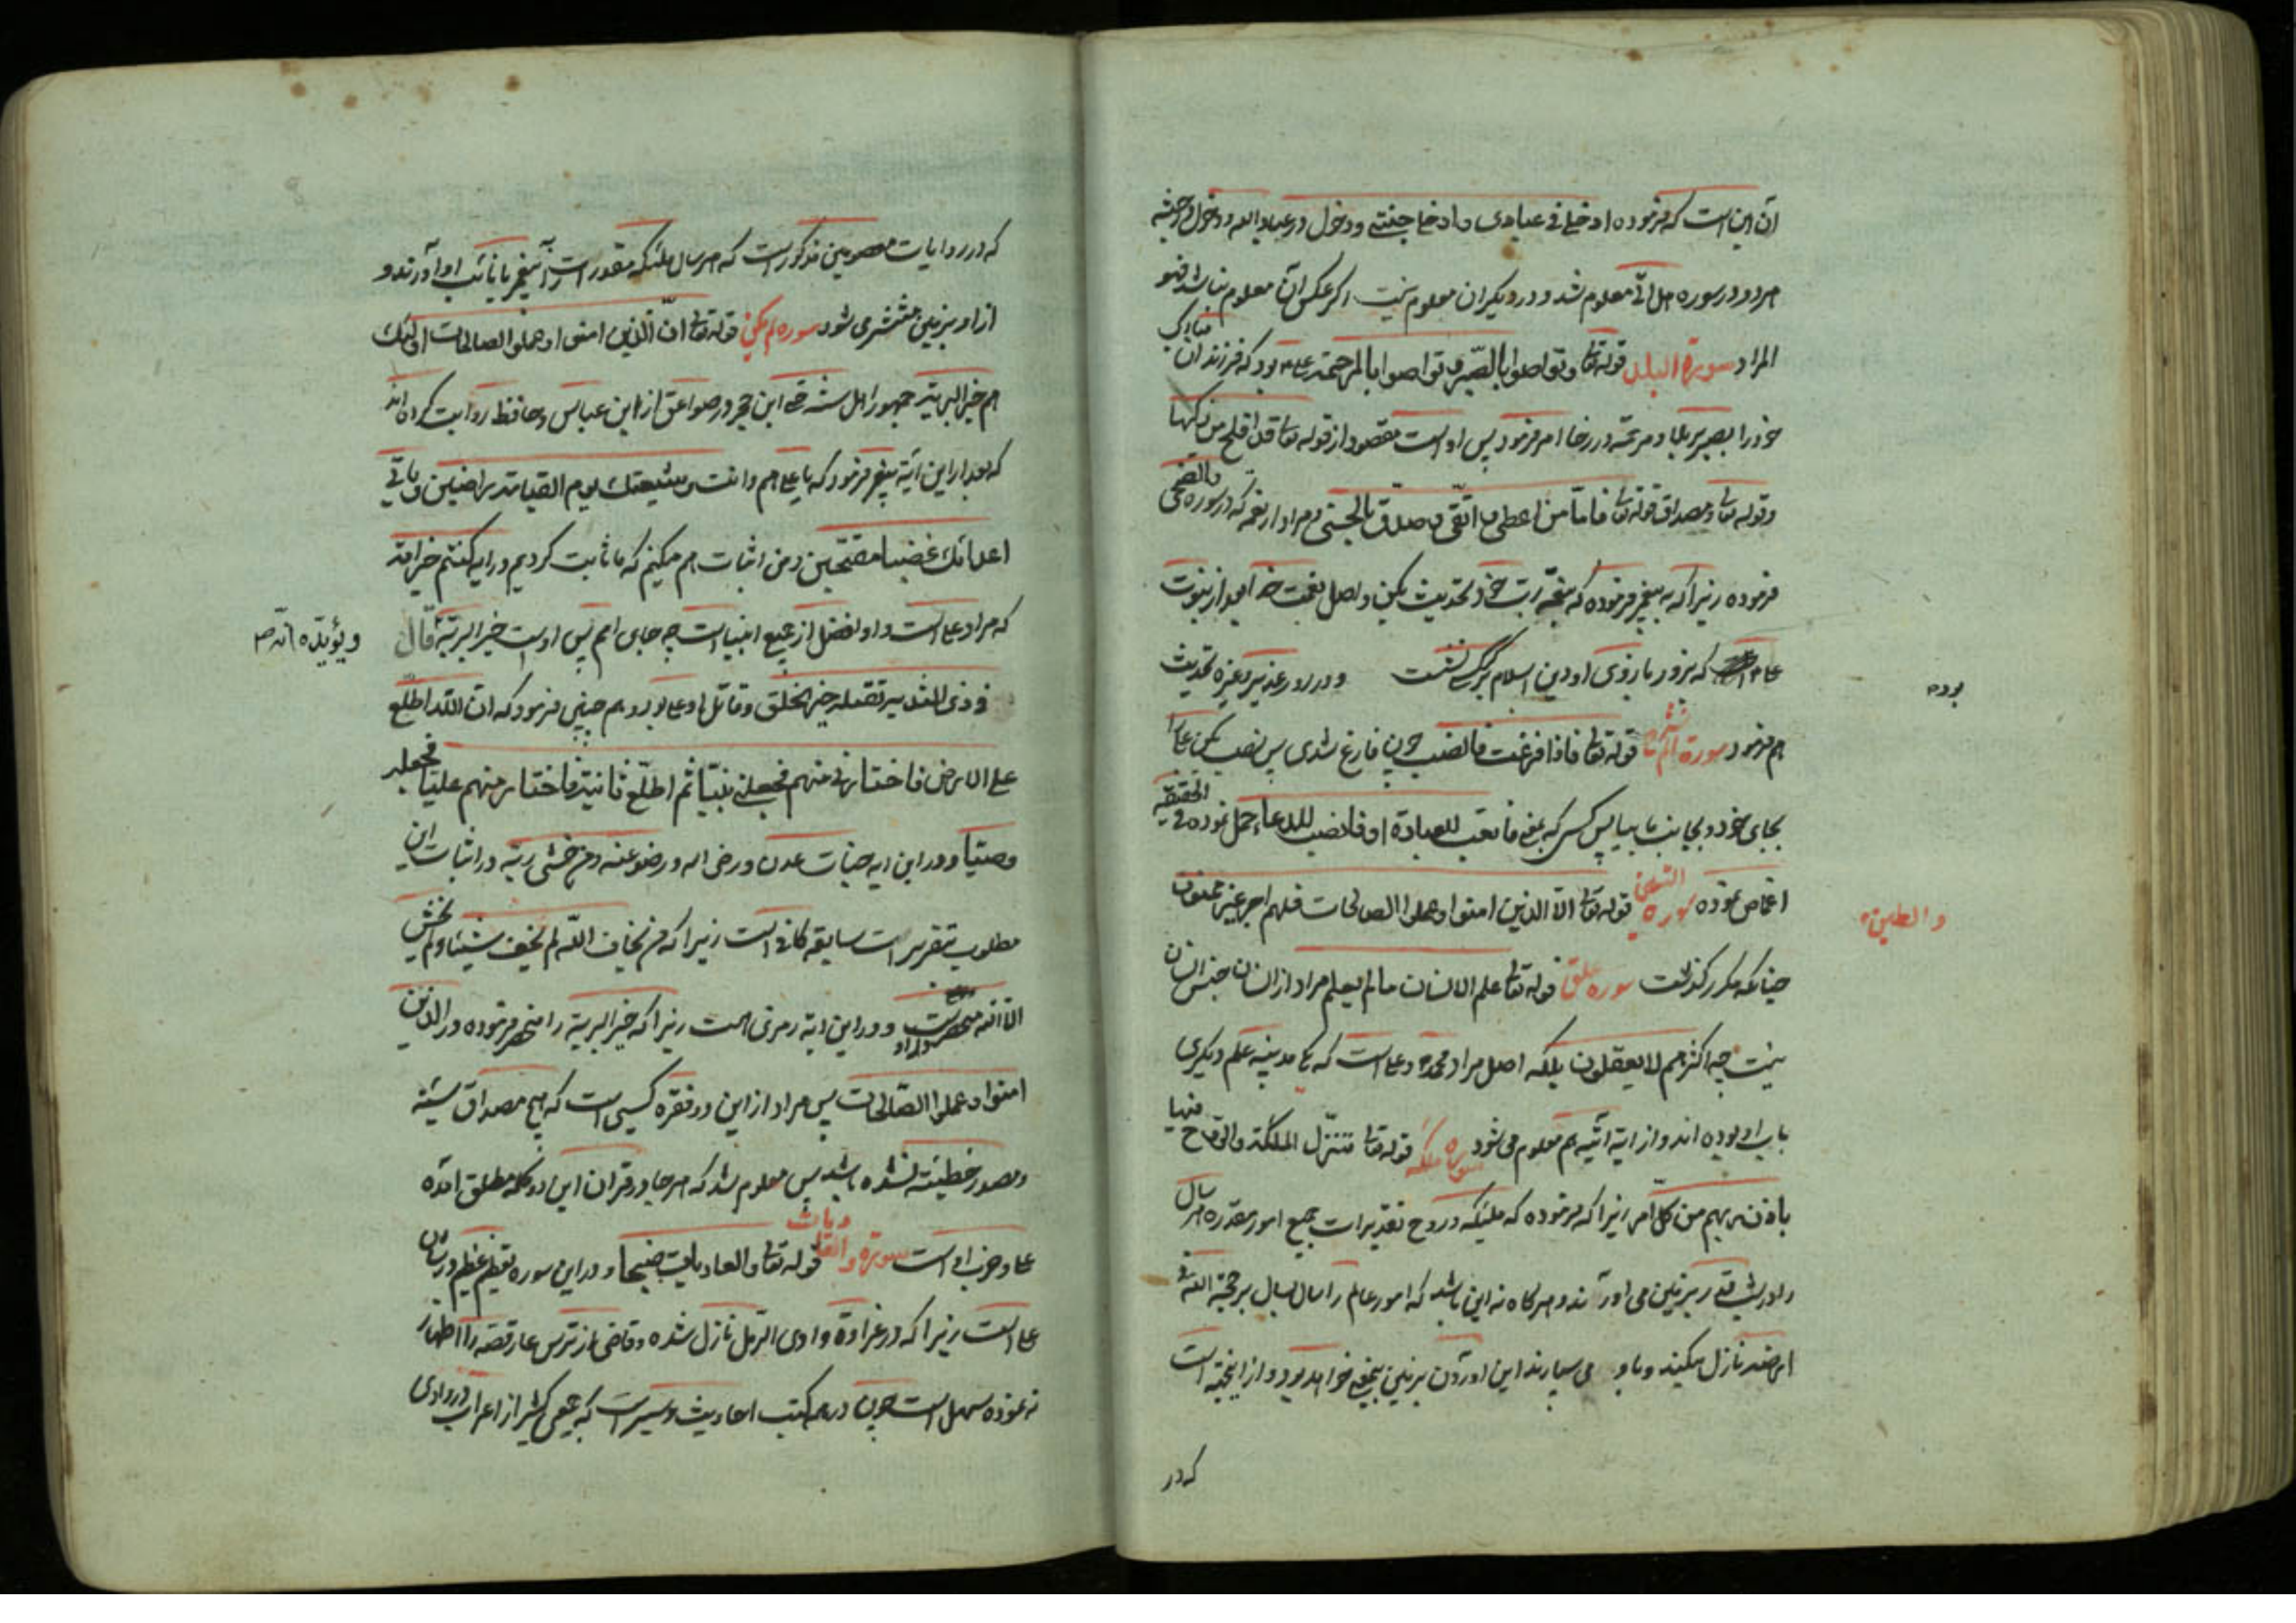 آن این است که فرموده ادخلی فی عبادی و ادخلی جنتی و دخول در عباد الله و دخول در جنته
هر دو در سوره هل اتی معلوم شد و در دیگران معلوم نیست اگر عکس آن معلوم نباشد فهو
المراد سورة البلد قوله تعا وتواصوا بالصبر وتواصوا بالمرحمة علی بود که فرزندان
خود را بصبر بر بلا و مرحمة در رخا امر فرمود پس اوست مقصود از قوله تعا قد افلح من زکیها
وقوله تعا ومصداق قوله تعا فاما من اعطی و اتقی و صدق بالحسنی و مراد از نعمه که در سوره والضحی
فرموده زیرا که به پیغمبر فرموده که بنعمة ربک خود تحدیث بکن و اصل نعمت خدا بعد از نبوت
علی است که بزور بازوی او دین اسلام بر کرسی نشست و در روز غدیر و غیره تحدیث
بوده
هم فرمود سورة الم نشرح قوله تعا فاذا فرغت فانصب چون فارغ شدی پس نصب بکن علی را
بجای خود و بجانب ما بیا پس کسی که بمعنی فاتعب للعبادة او فانصب للدعا حمل نموده فی الحقیقه
اغماض نموده سوره التین قوله تعا الا الذین امنوا وعملوا الصالحات فلهم اجر غیر ممنون
والطین
چنانکه مکرر گذشت سوره علق قوله تعا علم الانسان ما لم یعلم مراد از انسان جنس انسان
نیست چه اکثرهم لا یعقلون بلکه اصل مراد محمد و علی است که یکی مدینه علم و دیگری
باب او بوده اند و از ایه اتیه هم معلوم می شود سوره قوله تعا تنزل الملئکة والروح فیها
باذن ربهم من کل امر زیرا که فرموده که ملئکه و روح تقدیرات جمیع امور مقدره هر سال
را در شب قدر بزمین می اورند و هرگاه نه این باشد که امور عالم را سال بسال بر حجة الله فی
ارضه نازل میکنند و باو می سپارند این اوردن بزمین بیمعنی خواهد بود و از اینجهة است
که در
که در روایات معصومین مذکور است که هر سال ملئکه مقدرات را به پیغمبر یا نائب او آورند و
از او بزمین منتشر می شود سوره لم یکن قوله تعا ان الذین امنوا وعملوا الصالحات اولئک
هم خیر البریة جمهور اهل سنة حتی ابن حجر در صواعق از ابن عباس و حافظ روایت کرده اند
که بعد از این آیه پیغمبر فرمود که یا علی هم وانت وشیعتک یوم القیامة راضیین و یاتی
اعدائک غضبا مقمحین و من اثبات هم میکنم که ما ثابت کردیم در ایه کنتم خیر امة
که مراد علی است و او افضل از جمیع انبیاست چه جای امم پس اوست خیر البریة قال
ویؤیده انه ص
فی ذی الثدیه تقتله خیر الخلق وقاتل او علی بود و هم چنین فرمود که ان الله اطلع
علی الارض فاختارنی منهم فجعلنی نبیا ثم اطلع ثانیة فاختار منهم علیا فجعله
وصیا و در این ایه جنات عدن و رضی الله و رضوا عنه و من خشی ربه در اثبات این
مطلوب تقریر سابقه کافی است زیرا که من یخاف الله لم یخف شیئا ولم یخش
الا الله و در این ایة رمزی است زیرا که خیر البریة را منحصر فرموده در الذین
امنوا وعملوا الصالحات پس مراد از این دو فقره کسی است که هیچ مصداق سیئه
و مصدر خطیئه نشده باشد پس معلوم شد که هر جا در قران این دو کلمه مطلق امده
علی و حزب او است سورة والعادیات قوله تعا والعادیات ضبحا و در این سوره تعظیم عظیم در شان
علی است زیرا که در غزاوة وادی الرمل نازل شده و قاضی از ترس عار قصه را اظهار
نه نموده سهل است چون در همه کتب احادیث و سیر است که جمعی کثیر از اعراب در وادی